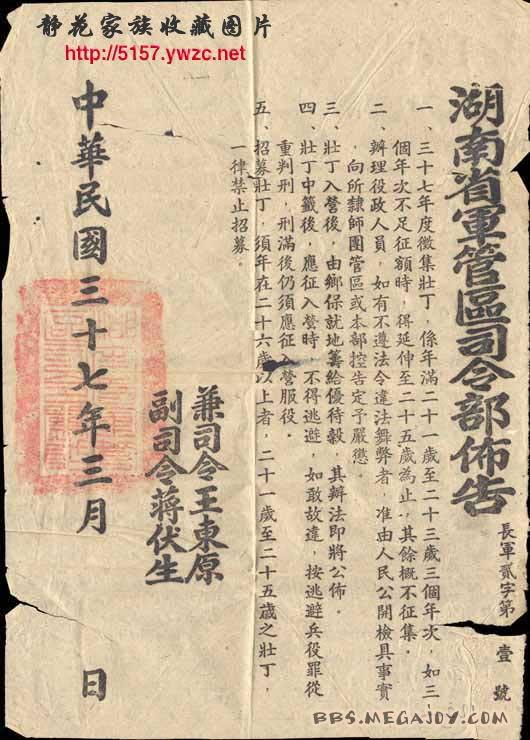 静花家族收藏图片
http://5157.ywzc.net
湖南省軍管區司令部佈告
長軍貳字第壹號
一、三十七年度徵集壯丁，係年滿二十一歲至二十三歲三個年次，如三
個年次不足征額時，得延伸至二十五歲為止，其餘概不征集。
二、辦理役政人員，如有不遵法令違法舞弊者，准由人民公開檢具事實
，向所隸師團管區或本部控告定予嚴懲。
三、壯丁入營後，由鄉保就地籌給優待穀，其辦法即將公佈。
四、壯丁中籤後，應征入營時，不得逃避，如敢故違，按逃避兵役罪從
重判刑，刑滿後仍須應征入營服役。
五、招募壯丁，須年在二十六歲以上者，二十一歲至二十五歲之壯丁，
一律禁止招募。
兼司令王東原
副司令蔣伏生
中華民國三十七年三月 日
BBS.MEGAJOY.COM